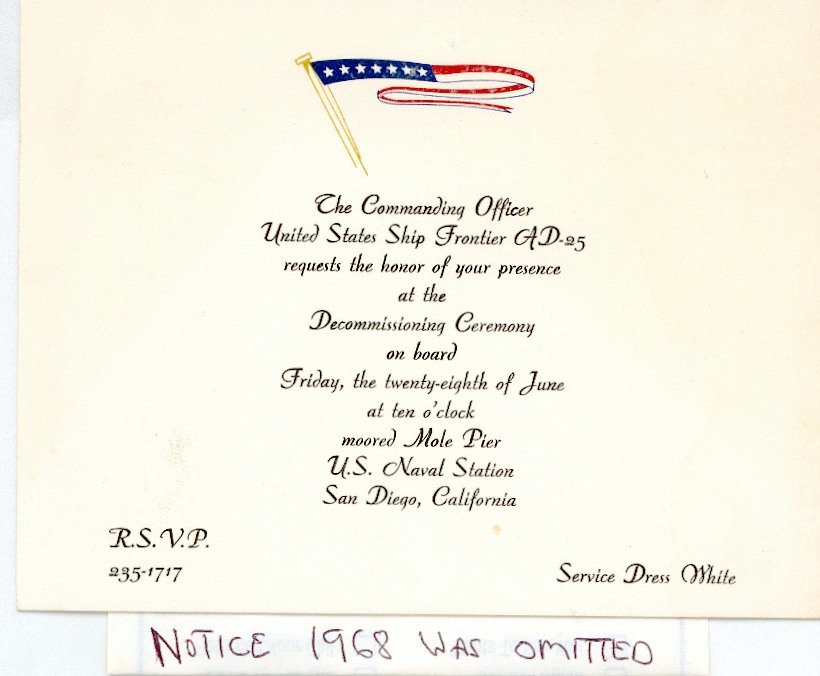 The Commanding Officer
United States Ship Frontier AD-25
requests the honor of your presence
at the
Decommissioning Ceremony
on board
Friday, the twenty-eighth of June
at ten o'clock
moored Mole Pier
U.S. Naval Station
San Diego, California
R.S.V.P.
235-1717
Service Dress White
NOTICE 1968 WAS OMITTED